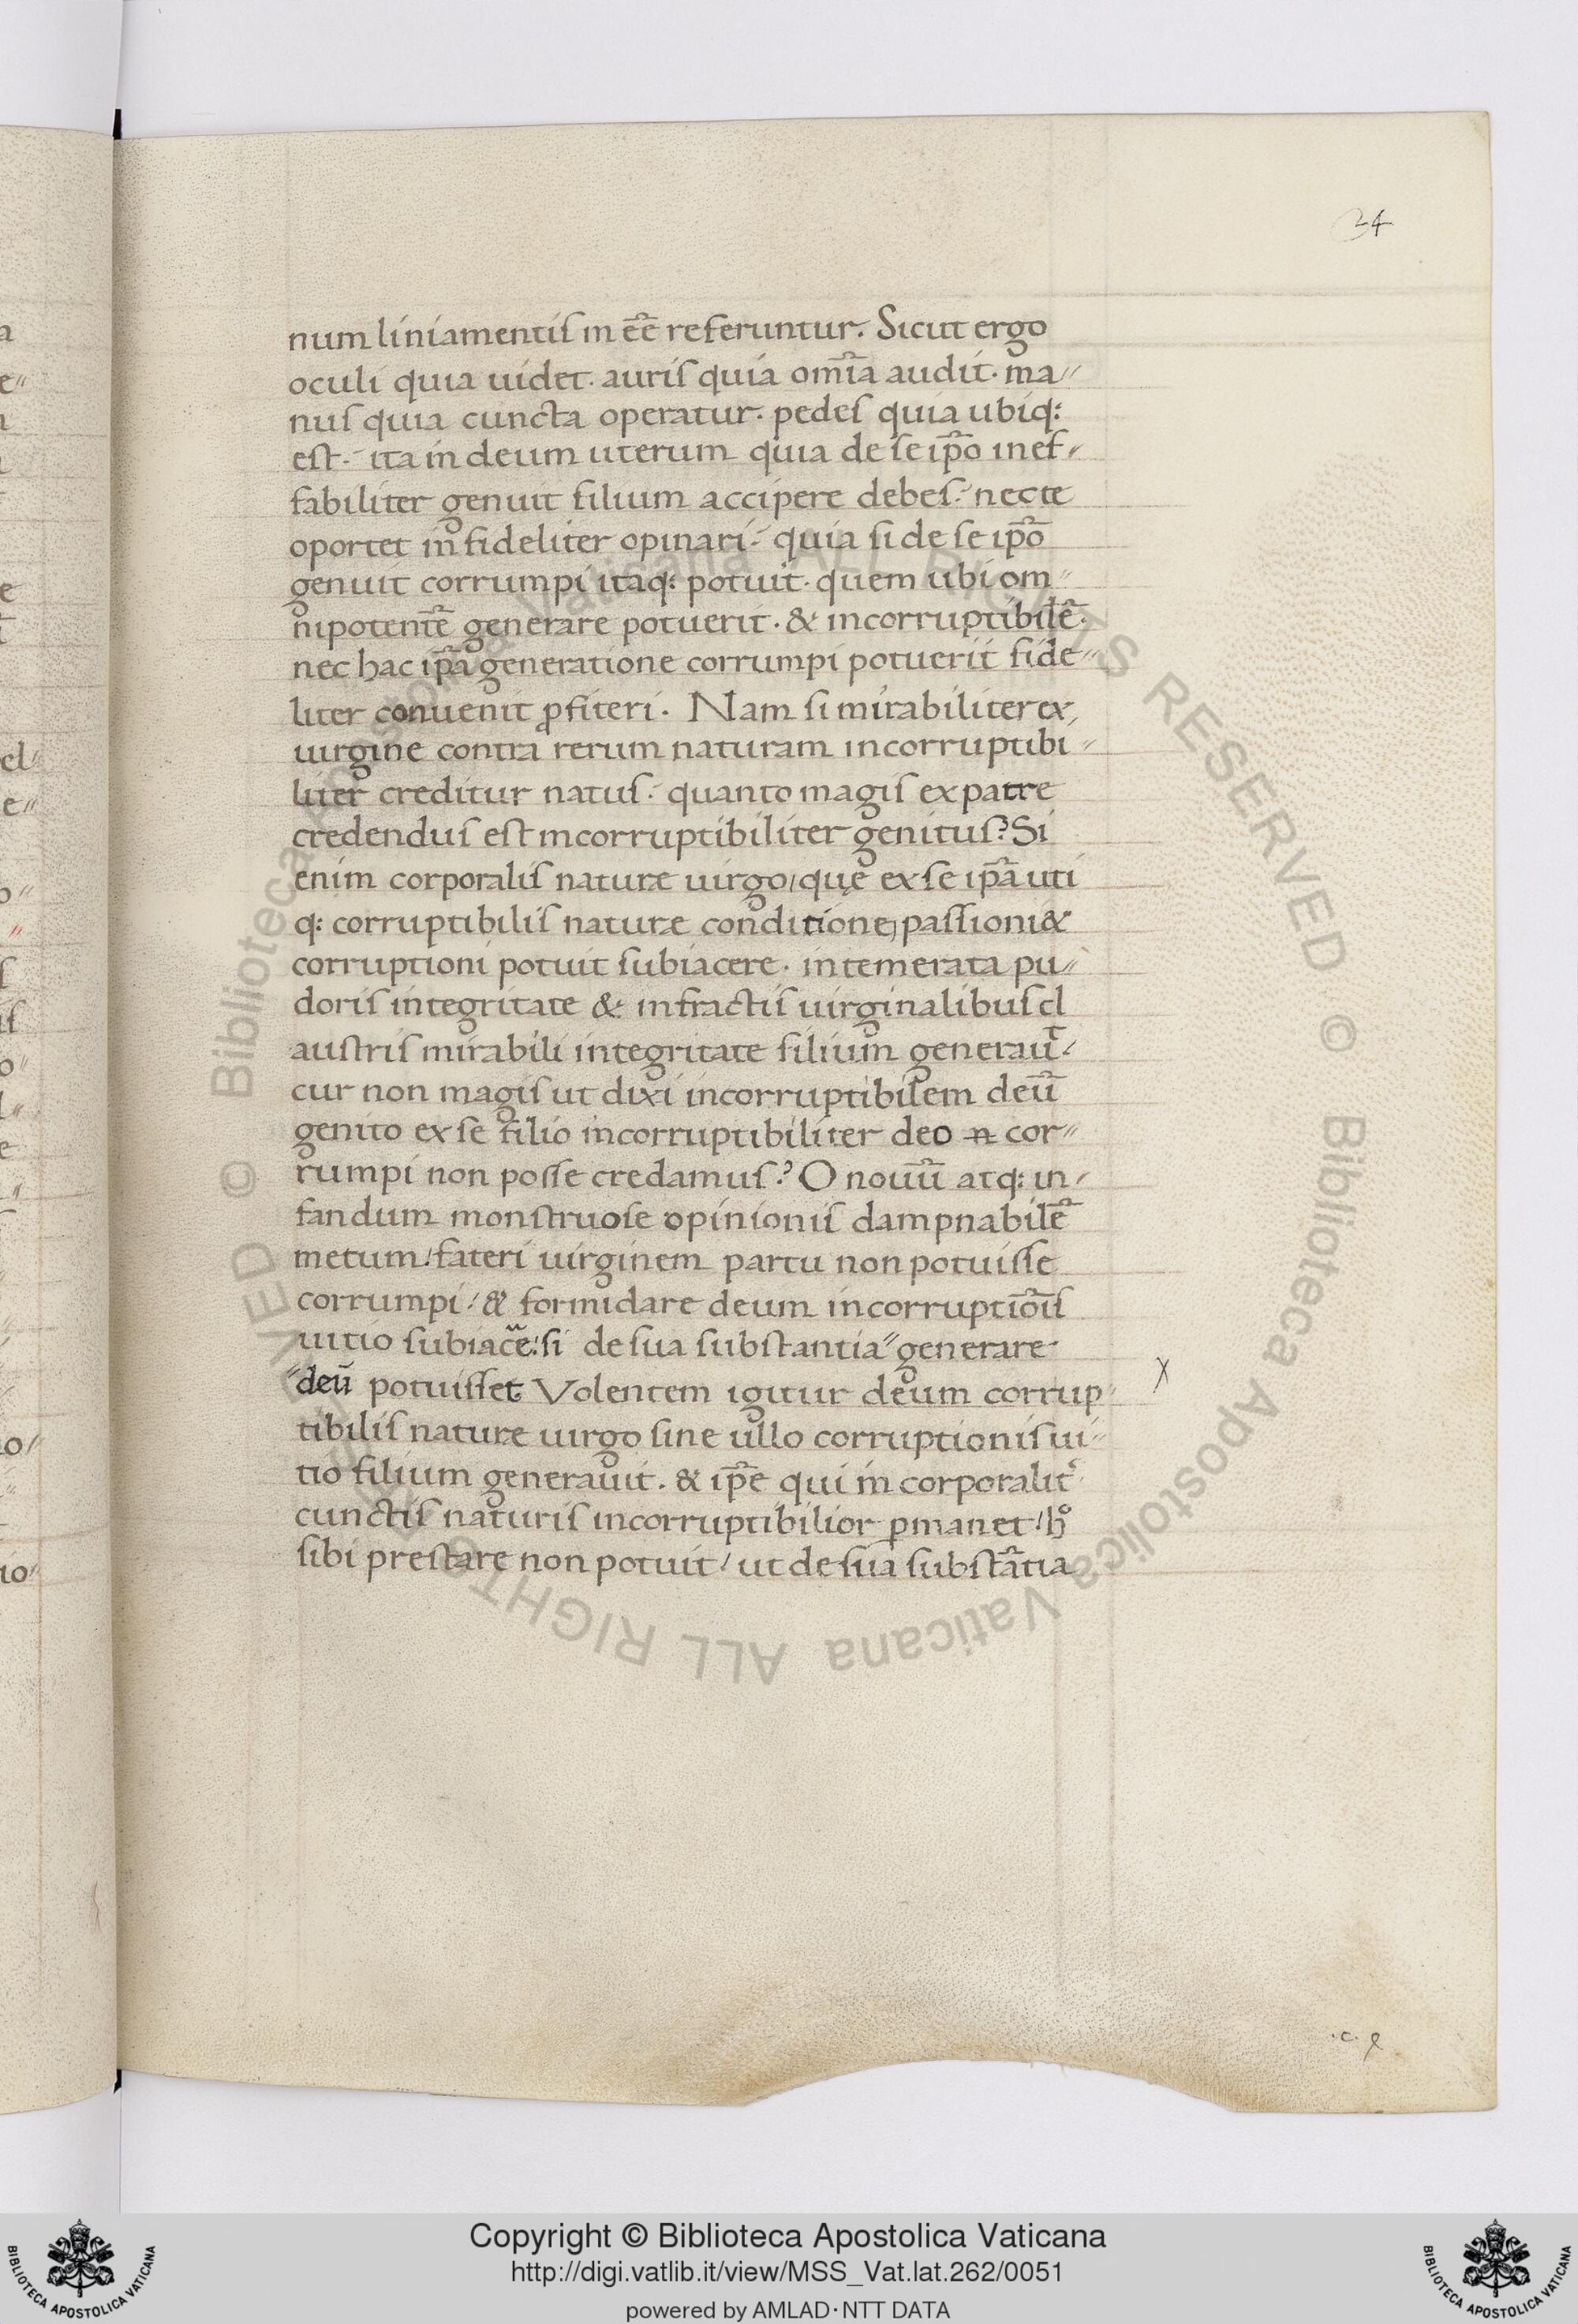 24
num liniamentis in eē̄ referuntur. Sicut ergo
oculi quia uidet. auris quia om̄ia audit. ma〃
nus quia cuncta operatur. pedes quia ubiq:
est. ita in deum uterum quia de se ip̄o inef〃
fabiliter genuit filium accipere debes. nec te
oportet infideliter opinari. quia si de se ip̄o
genuit corrumpi itaq: potuit. quem ubi om〃
nipotentē generare potuerit. & incorruptibilē.
nec hac ip̄a generatione corrumpi potuerit fide〃
liter conuenit ꝓfiteri. Nam si mirabiliter ex,
uirgine contra rerum naturam incorruptibi〃
liter creditur natus. quanto magis ex patre
credendus est incorruptibiliter genitus? Si
enim corporalis naturæ uirgo/quę ex se ip̄a uti
q: corruptibilis naturæ conditione, passioni &
corruptioni potuit subiacere. intemerata pu〃
doris integritate & infractis uirginalibus cl
austris mirabili integritate filium generauͭ.
cur non magis ut dixi incorruptibilem deū
genito ex se filio incorruptibiliter deo n cor〃
rumpi non posse credamus? O nouū atq: in〃
fandum monstruose opinionis dampnabilē
metum/fateri uirginem partu non potuisse
corrumpi/ & formidare deum incorruptiōis
uitio subiac̄e:si de sua substantia〃generare
〃deū potuisset Volentem igitur deum corrup〃
tibilis naturæ uirgo sine ullo corruptionis ui〃
tio filium generauit. & ip̄e qui in corporalit᷑
cunctis naturis incorruptibilior ꝑmanet/ hͦ
sibi prestare non potuit/ ut de sua substātia
x
.c. 
VED © Biblioteca Apostolica Vaticana ALL RIGHTS RESERVED © Biblioteca Apostolica Vaticana ALL RIGHT
Copyright © Biblioteca Apostolica Vaticana
http://digi.vatlib.it/view/MSS_Vat.lat.262/0051
powered by AMLAD·NTT DATA
BIBLIOTECA APOSTOLICA VATICANA
BIBLIOTECA APOSTOLICA VATICANA